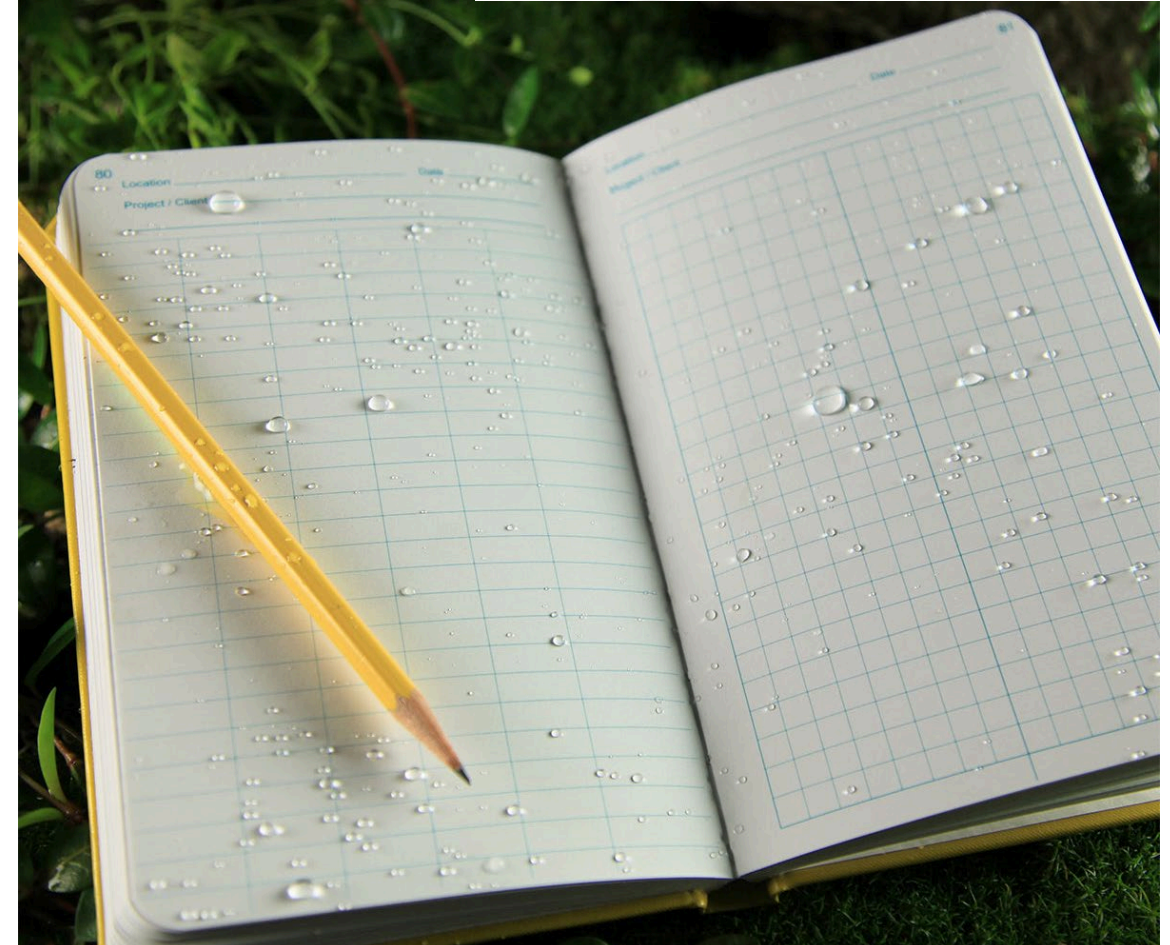 80
Location Date
Project / Client
81
Date
Location
Project / Client